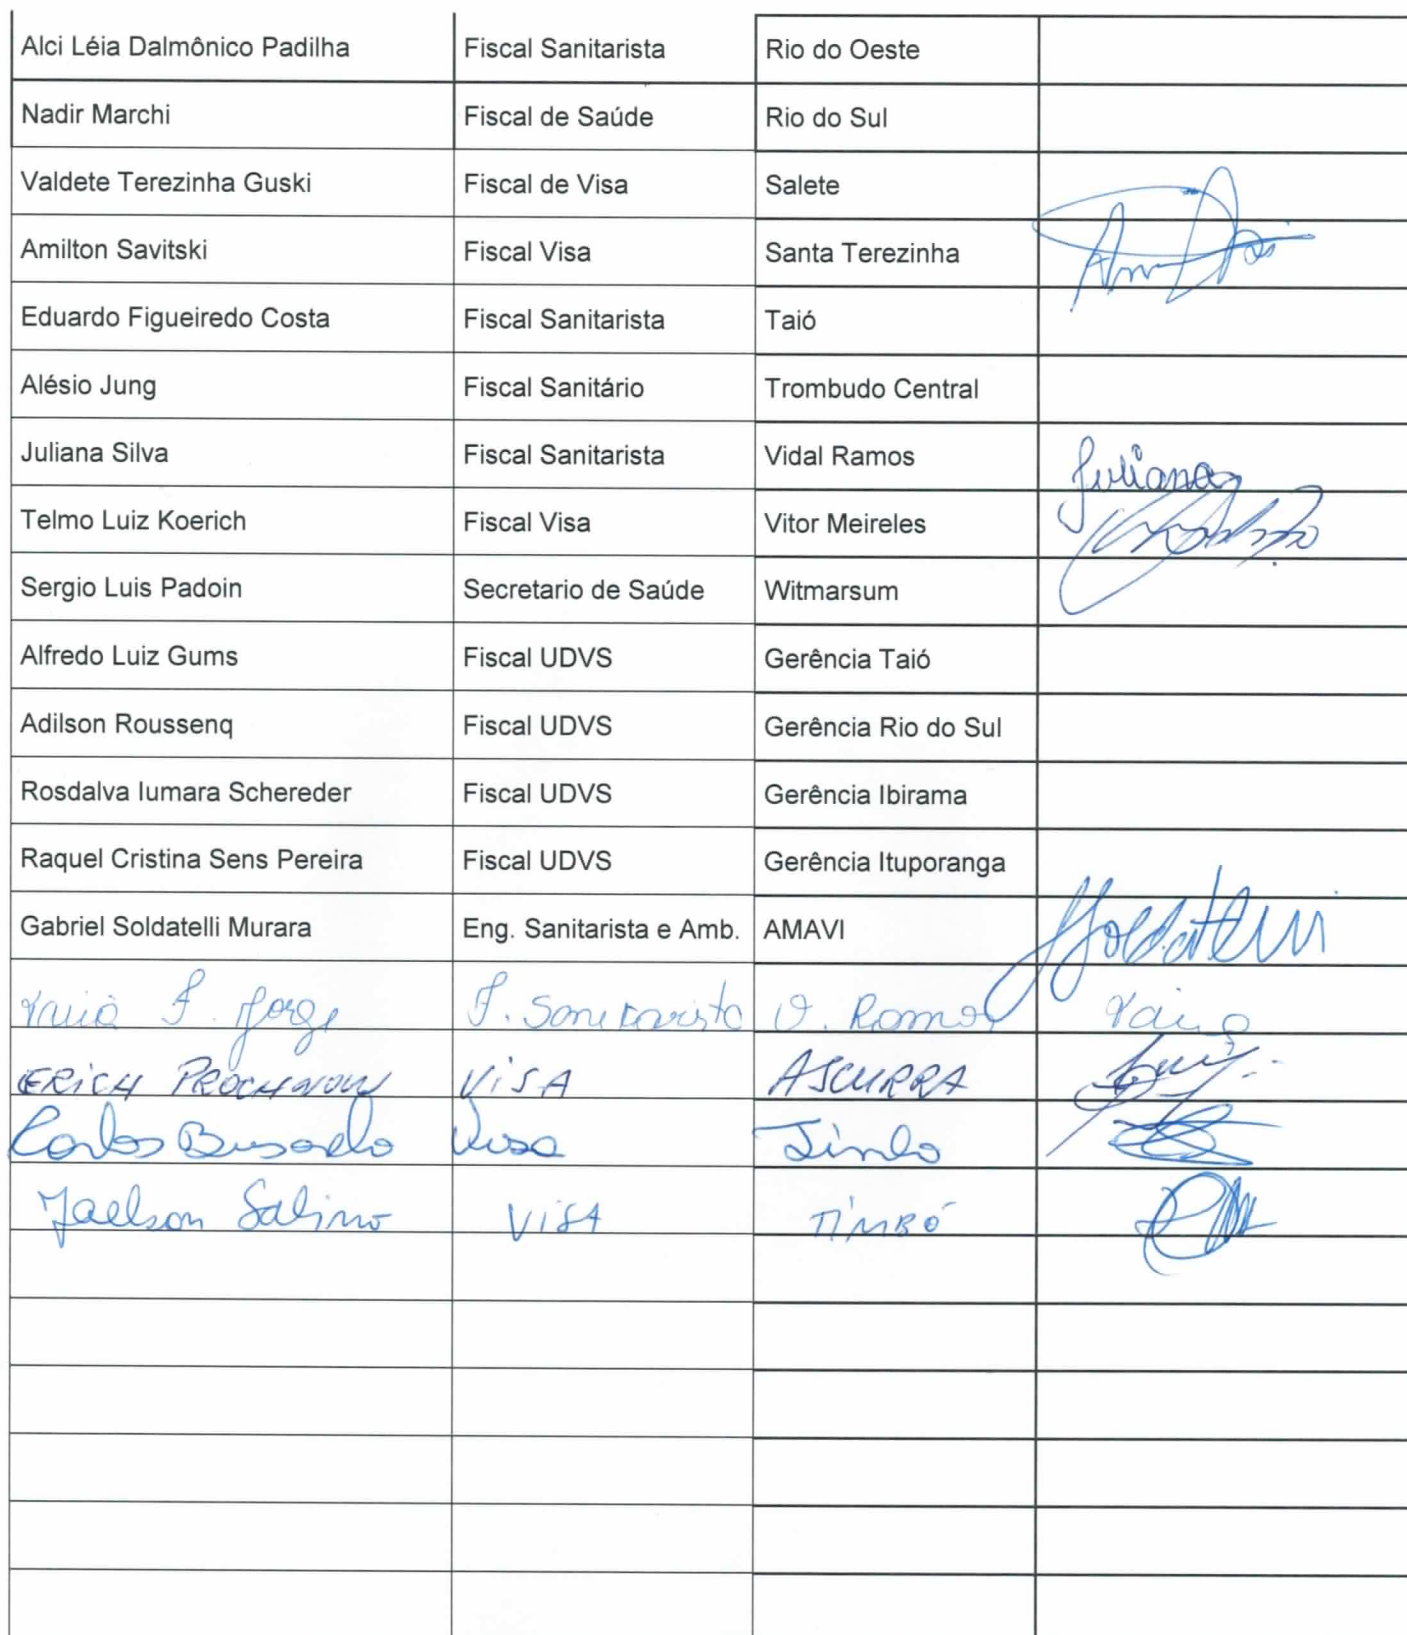 Alci Léia Dalmônico Padilha Fiscal Sanitarista Rio do Oeste
Nadir Marchi Fiscal de Saúde Rio do Sul
Valdete Terezinha Guski Fiscal de Visa Salete
Amilton Savitski Fiscal Visa Santa Terezinha
Eduardo Figueiredo Costa Fiscal Sanitarista Taió
Alésio Jung Fiscal Sanitário Trombudo Central
Juliana Silva Fiscal Sanitarista Vidal Ramos Juliana
Telmo Luiz Koerich Fiscal Visa Vitor Meireles
Sergio Luis Padoin Secretario de Saúde Witmarsum
Alfredo Luiz Gums Fiscal UDVS Gerência Taió
Adilson Roussenq Fiscal UDVS Gerência Rio do Sul
Rosdalva Iumara Schereder Fiscal UDVS Gerência Ibirama
Raquel Cristina Sens Pereira Fiscal UDVS Gerência Ituporanga
Gabriel Soldatelli Murara Eng. Sanitarista e Amb. AMAVI
F. Jorge F. Sanitarista V. Ramos
ERICH PROCHNOW ViSA ASCURRA
Carlos Visa
Jaelson Salino ViSA TIMBÓ